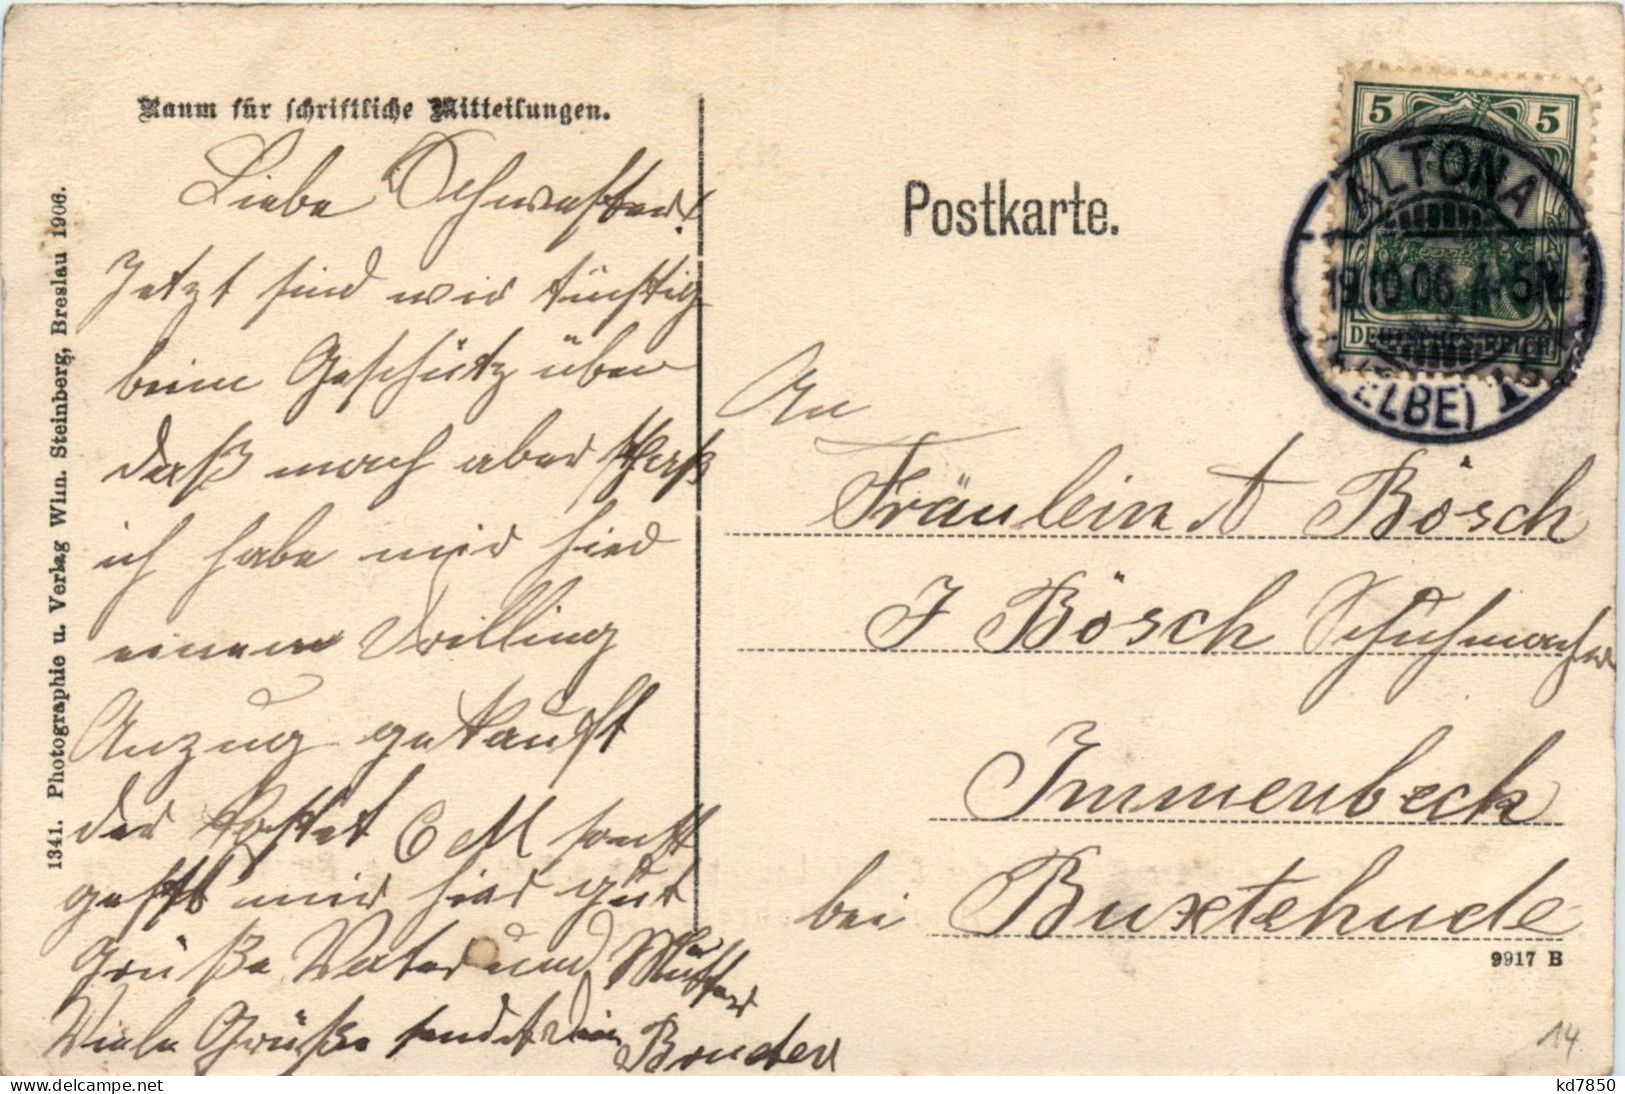 Raum für schriftliche Mitteilungen.
Liebe Schwester!
Jetzt sind wir tüchtig
beim Geschütz üben
daß mach aber Spaß
ich habe mir hier
einen Drilling
Anzug gekauft
der kostet 6 M sonst
gehts mir hier gut
Grüße Vater und Mutter
Viele Grüße sendet dein
Bruder
1341. Photographie u. Verlag Wlm. Steinberg, Breslau 1906.
Postkarte.
5 5
DEUTSCHES REICH
ALTONA
19.10.06. 4-5N
(ELBE) 1
An
Fräulein A Bösch
J Bösch Schuhmacher
Immenbeck
bei Buxtehude
9917 B
14
kd7850